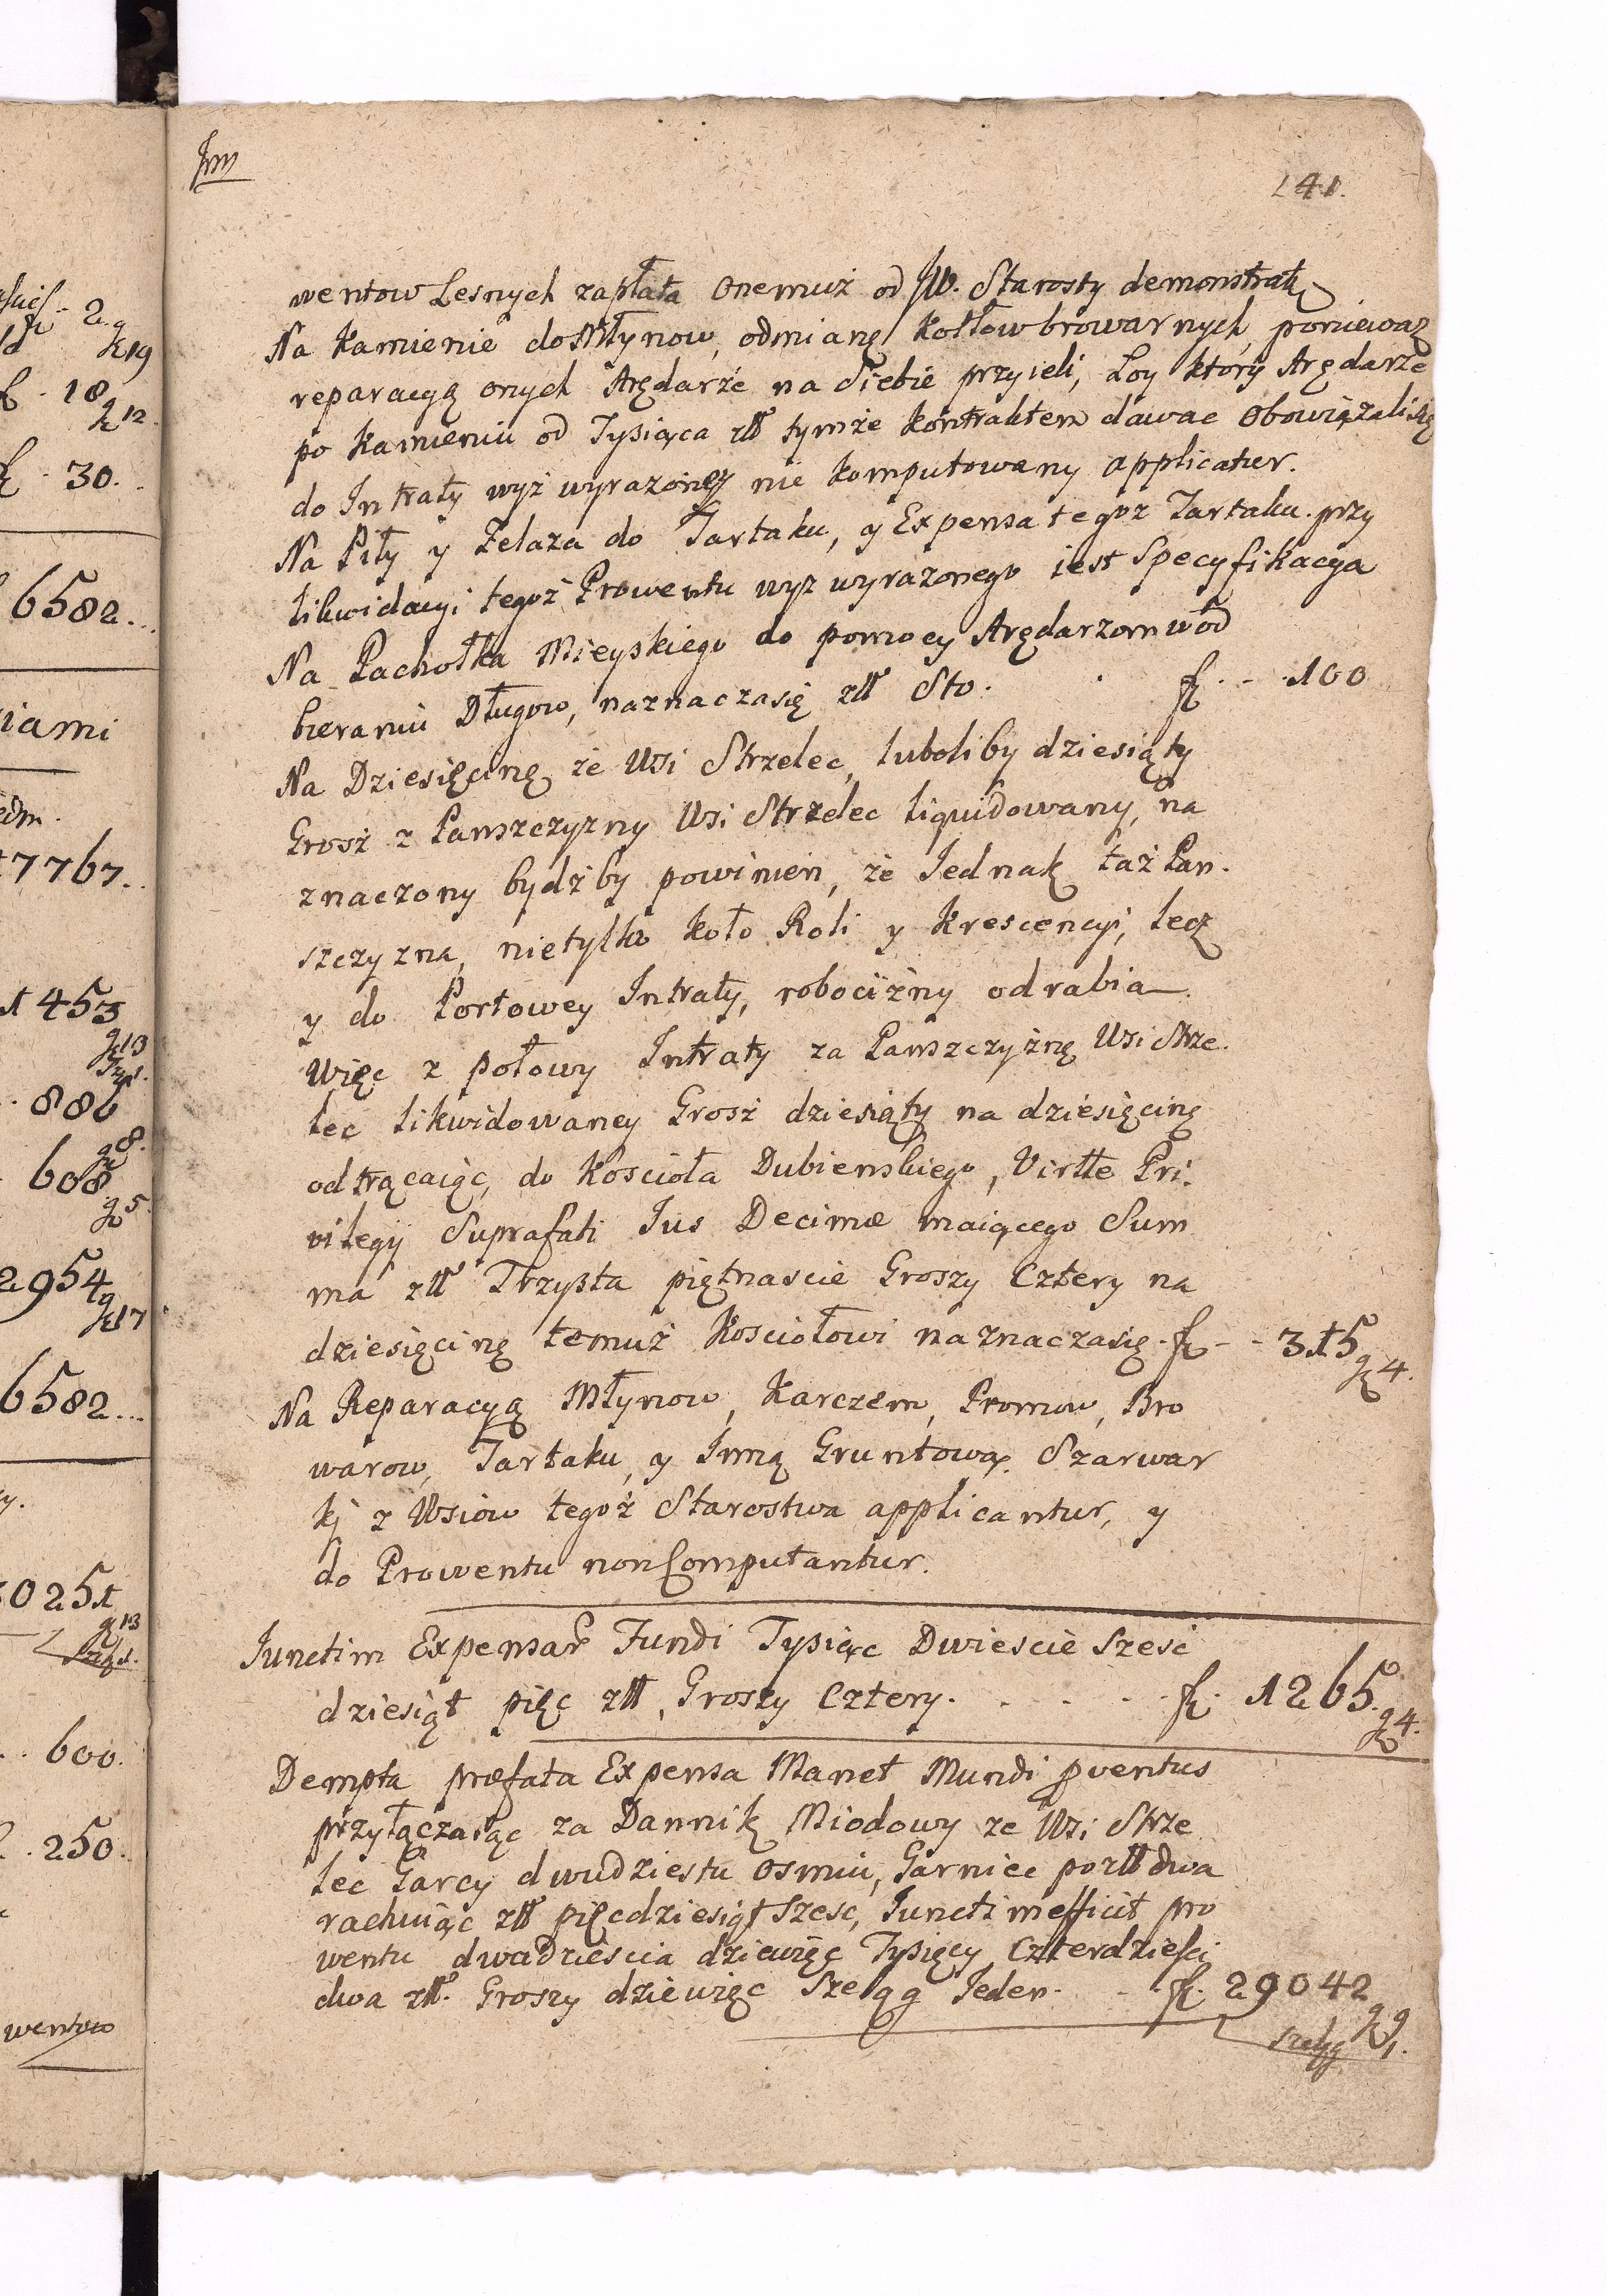 241.
wentow Lesnych zapłata onemuż od JW. Starosty demonstratr
Na Kamienie do Młynow, odmianę Kotłow browarnych, ponieważ
reparacyą onych Arędarże na Siebie przyieli, Łoy który Arędarże
po Kamieniu od Tysiąca złł tymże Kontraktem dawac obowiązali się
do Intraty wyż wyrażoney nie komputowany applicatur.
Na Piły y Zelaza do Tartaku, y Expensa tegoz Tartaku przy
likwidacyi tegoż Prowentu wyz wyrazonego iest Specyfikacya
Na Pachołka Mieyskiego do pomocy Arędarzom w od
bieraniu Długow, naznacza się złł Sto. fl. - - 100
Na Dziesięcinę że Wsi Strzelec, luboliby dziesiąty
Grosz z Panszczyzny Wsi Strzelec liquidowany, na
znaczony bydźby powinien, że Jednak taż Pan.
szczyzna, nietylko koło Roli y Krescencyi, lecz
y do Portowey Intraty, robocizny odrabia
Więc z połowy Intraty za Panszczyżnę Wsi Strze.
lec likwidowaney Grosz dziesiąty na dziesięcinę
odtrącaiąc, do Koscioła Dubienskiego, Virtte Pri.
vilegij Suprafati Jus Decimæ maiącego Sum
ma złł Trzysta piętnascie Groszy Cztery na
dziesięcinę temuż Kosciołowi naznacza się - fl - - 315
g 4.
Na Reparacyą Młynow, Karczem, Promow, Bro
warow, Tartaku, y Inną Gruntową Szarwar
kj z Wsiow tegoż Starostwa applicantur, y
do Prowentu non Computantur.
Junctim Expensar Fundi Tysiąc Dwiescie Szesć
dziesiąt pięc złł, Groszy Cztery. . . . . fl. 1265.
g 4.
Dempta præfata Expensa Manet Mundi pventus
przyłączaiąc za Dannik Miodowy ze Wsi Strze
lec Garcy dwudziestu osmiu, Garniec po złł dwa
rachuiąc złł pięcdziesiąt szesc, Junctim efficit pro
wentu dwadziescia dziewięc Tysięcy Czterdzieści
dwa złł. Groszy dziewięc Szelqg Jeden. - fl. 29042
g 9
szelqg 1.
2
g 19
18
g 12.
30.
6582...
iami
17767..
1453
g 13
886
g 8.
608
g 5
2954
g 17
6582...
30251
g 13
600.
250.
wentow